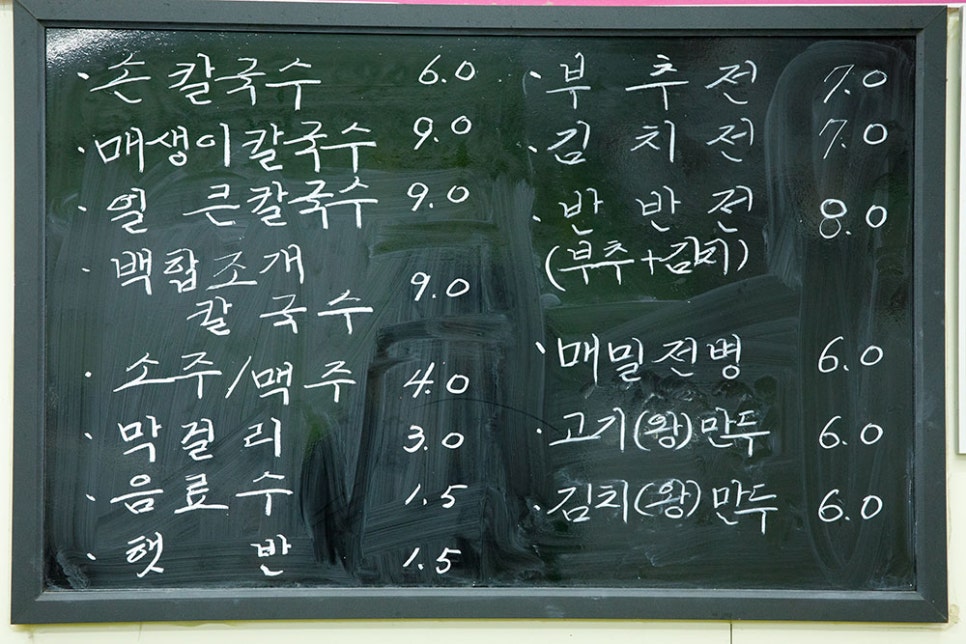 · 손 칼국수 6.0
· 매생이칼국수 9.0
· 얼 큰칼국수 9.0
· 백합조개
칼 국 수 9.0
· 소주/맥주 4.0
· 막걸리 3.0
· 음료수 1.5
· 햇 반 1.5
· 부 추 전 7.0
· 김 치 전 7.0
· 반 반 전 8.0
(부추+김치)
· 매밀전병 6.0
· 고기(왕)만두 6.0
· 김치(왕)만두 6.0